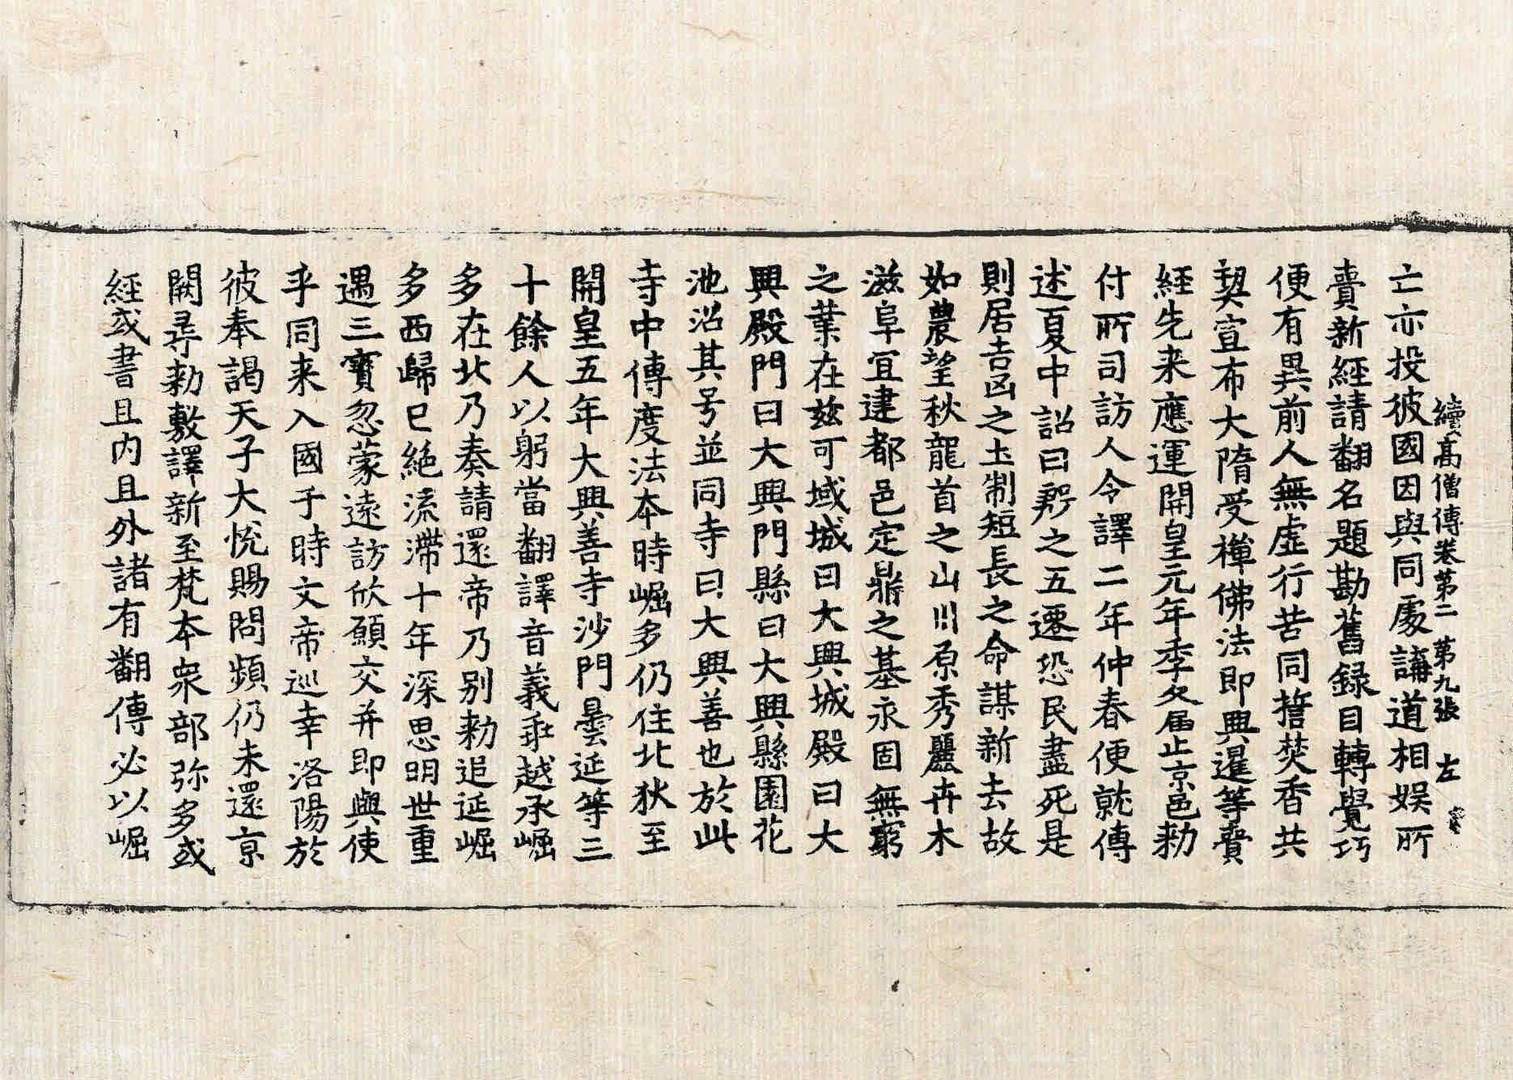 續高僧傳卷第二 第九張 左
亡亦投彼國因與同處講道相娛所
賷新經請翻名題勘舊録目轉覺巧
便有異前人無虛行苦同誓焚香共
契宣布大隋受禪佛法即興暹等賷
經先来應運開皇元年季冬届止京邑勑
付所司訪人令譯二年仲春便就傳
述夏中詔曰殷之五遷恐民盡死是
則居吉凶之土制短長之命謀新去故
如農望秋龍首之山川原秀麗卉木
滋阜宜建都邑定鼎之基永固無窮
之業在兹可域城曰大興城殿曰大
興殿門曰大興門縣曰大興縣園花
池沼其号並同寺曰大興善也於此
寺中傳度法本時崛多仍住北狄至
開皇五年大興善寺沙門曇延等三
十餘人以躬當翻譯音義乖越承崛
多在北乃奏請還帝乃別勑追延崛
多西歸已絶流滯十年深思明世重
遇三寳忽蒙遠訪欣願交并即與使
乎同来入國于時文帝巡幸洛陽於
彼奉謁天子大悅賜問頻仍未還京
闕尋勑敷譯新至梵本衆部弥多或
經或書且内且外諸有翻傳必以崛